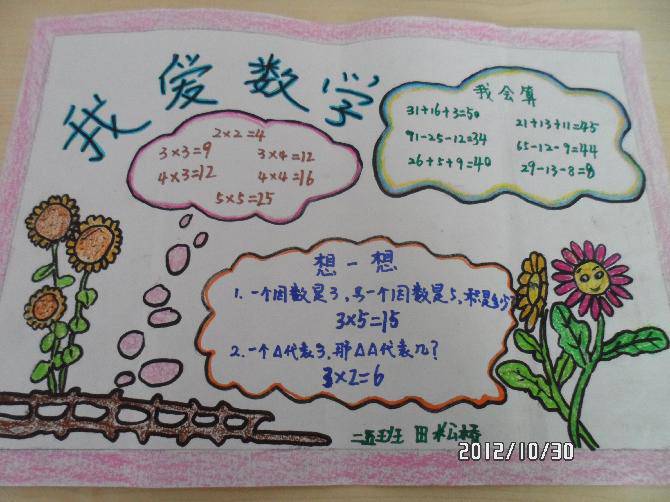 我爱数学
2×2=4
3×3=9 3×4=12
4×3=12 4×4=16
5×5=25
我会算
31+16+3=50 21+13+11=45
91-25-12=34 65-12-9=44
26+5+9=40 29-13-8=8
想一想
1.一个因数是3,另一个因数是5,积是多少?
3×5=15
2.一个△代表3,那△△代表几?
3×2=6
二五班 田
2012/10/30